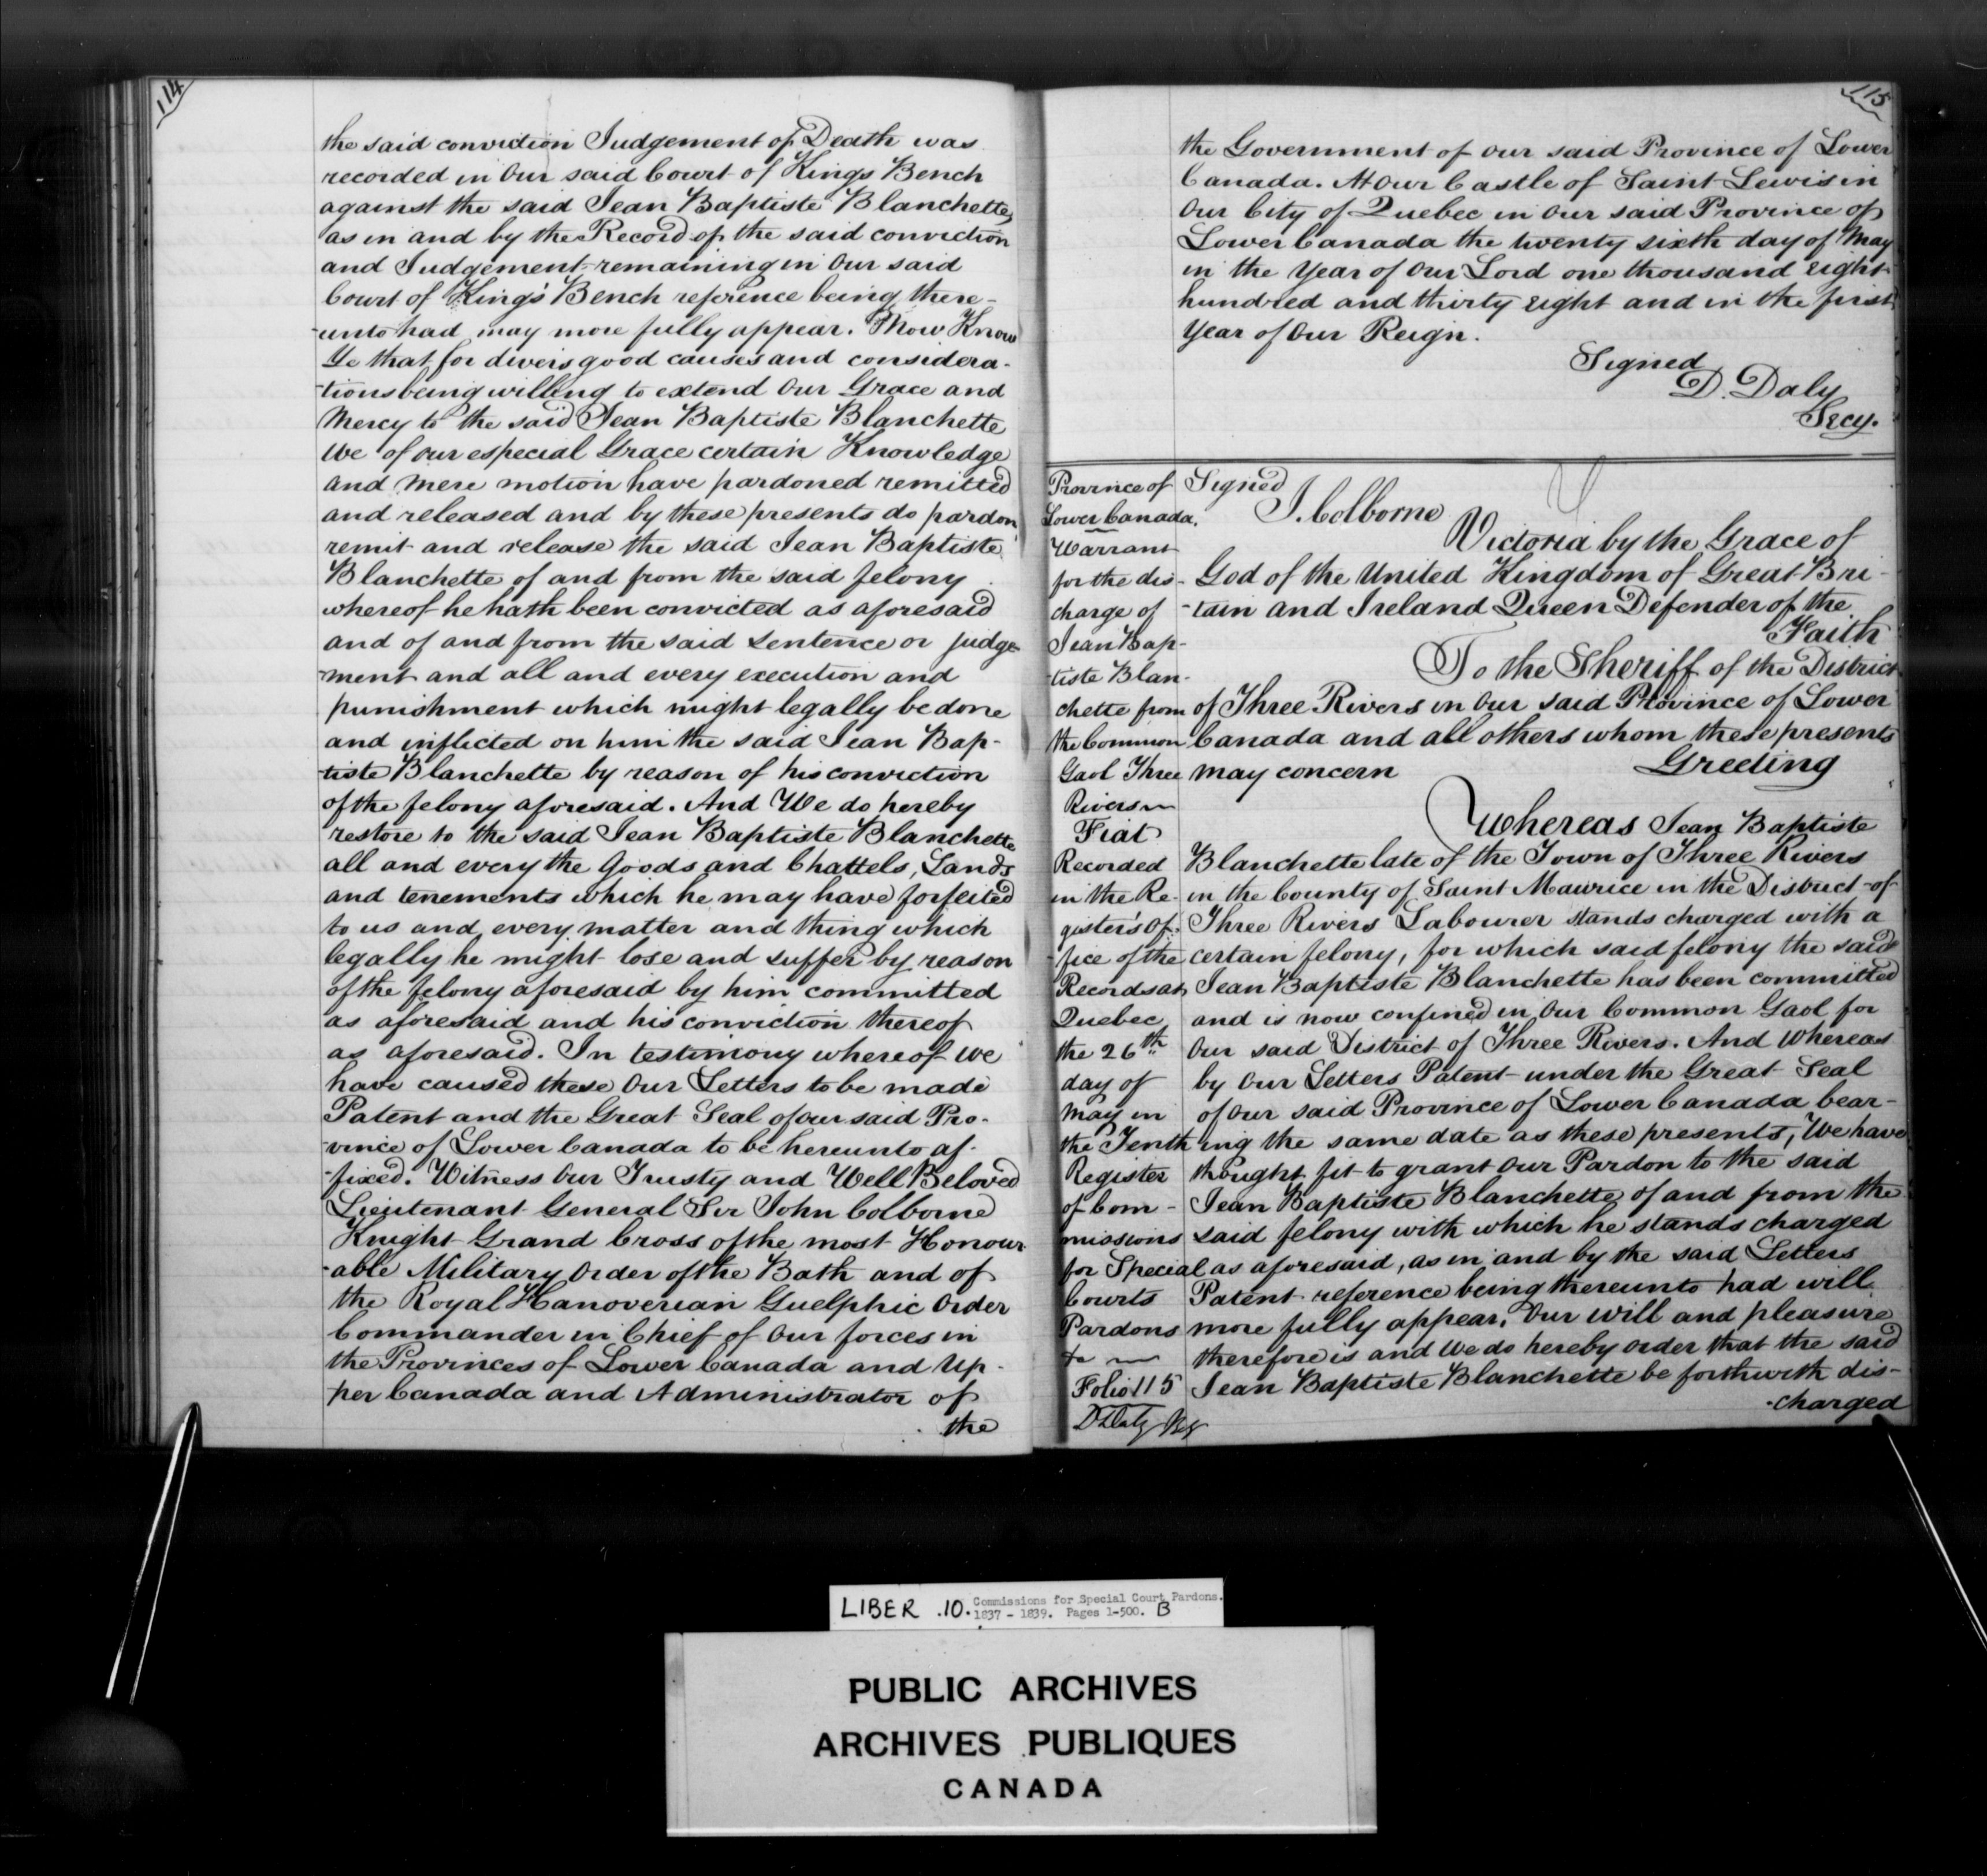 114
the said conviction Judgement of Death was
recorded in Our said Court of Kings Bench
against the said Jean Baptiste Blanchette,
as in and by the Record of the said conviction
and Judgement remaining in Our said
Court of King's Bench reference being there-
-unto had may more fully appear. Now Know
Ye that for divers good causes and considera-
-tions being willing to extend Our Grace and
Mercy to the said Jean Baptiste Blanchette
We of our especial Grace certain Knowledge
and mere motion have pardoned remitted
and released and by these presents do pardon
remit and release the said Jean Baptiste
Blanchette of and from the said felony
whereof he hath been convicted as aforesaid
and of and from the said sentence or judge-
-ment and all and every execution and
punishment which might legally be done
and inflicted on him the said Jean Bap-
-tiste Blanchette by reason of his conviction
of the felony aforesaid. And We do hereby
restore to the said Jean Baptiste Blanchette
all and every the Goods and Chattels, Lands
and tenements which he may have forfeited
to us and every matter and thing which
legally he might lose and suffer by reason
of the felony aforesaid by him committed
as aforesaid and his conviction thereof
as aforesaid. In testimony whereof we
have caused these Our Letters to be made
Patent and the Great Seal of our said Pro-
-vince of Lower Canada to be hereunto af-
-fixed. Witness Our Trusty and Well Beloved
Lieutenant General Sir John Colborne
Knight Grand Cross of the most Honour-
-able Military Order of the Bath and of
the Royal Hanoverian Guelphic Order
Commander in Chief of Our forces in
the Provinces of Lower Canada and Up-
per Canada and Administrator of
the
115
the Government of our said Province of Lower
Canada. At Our Castle of Saint Lewis in
Our City of Quebec in Our said Province of
Lower Canada the twenty sixth day of May
in the Year of Our Lord one thousand eight
hundred and thirty eight and in the first
Year of Our Reign.
Signed
D. Daly
Secy.
Province of
Lower Canada.
Warrant
for the dis-
charge of
Jean Bap-
-tiste Blan-
chette from
the Common
Gaol Three
Rivers
Fiat
Recorded
in the Re-
gister's Of-
-fice of the
Records at
Quebec
the 26th
day of
May in
the Tenth
Register
of Com-
missions
for Special
Courts
Pardons
&
Folio 115
D Daly Reg
Signed
J. Colborne
Victoria by the Grace of
God of the United Kingdom of Great Bri-
-tain and Ireland Queen Defender of the
Faith
To the Sheriff of the District
of Three Rivers in Our said Province of Lower
Canada and all others whom these presents
may concern Greeting
Whereas Jean Baptiste
Blanchette late of the Town of Three Rivers
in the County of Saint Maurice in the District of
Three Rivers Labourer stands charged with a
certain felony, for which said felony the said
Jean Baptiste Blanchette has been committed
and is now confined in Our Common Gaol for
Our said District of Three Rivers. And Whereas
by Our Letters Patent under the Great Seal
of our said Province of Lower Canada bear-
ing the same date as these presents, We have
thought fit to grant Our Pardon to the said
Jean Baptiste Blanchette of and from the
said felony with which he stands charged
as aforesaid, as in and by the said Letters
Patent reference being thereunto had will
more fully appear. Our will and pleasure
therefore is and We do hereby order that the said
Jean Baptiste Blanchette be forthwith dis-
-charged
LIBER .10. Commissions for Special Court Pardons.
1837 - 1839. Pages 1-500. B
PUBLIC ARCHIVES
ARCHIVES PUBLIQUES
CANADA